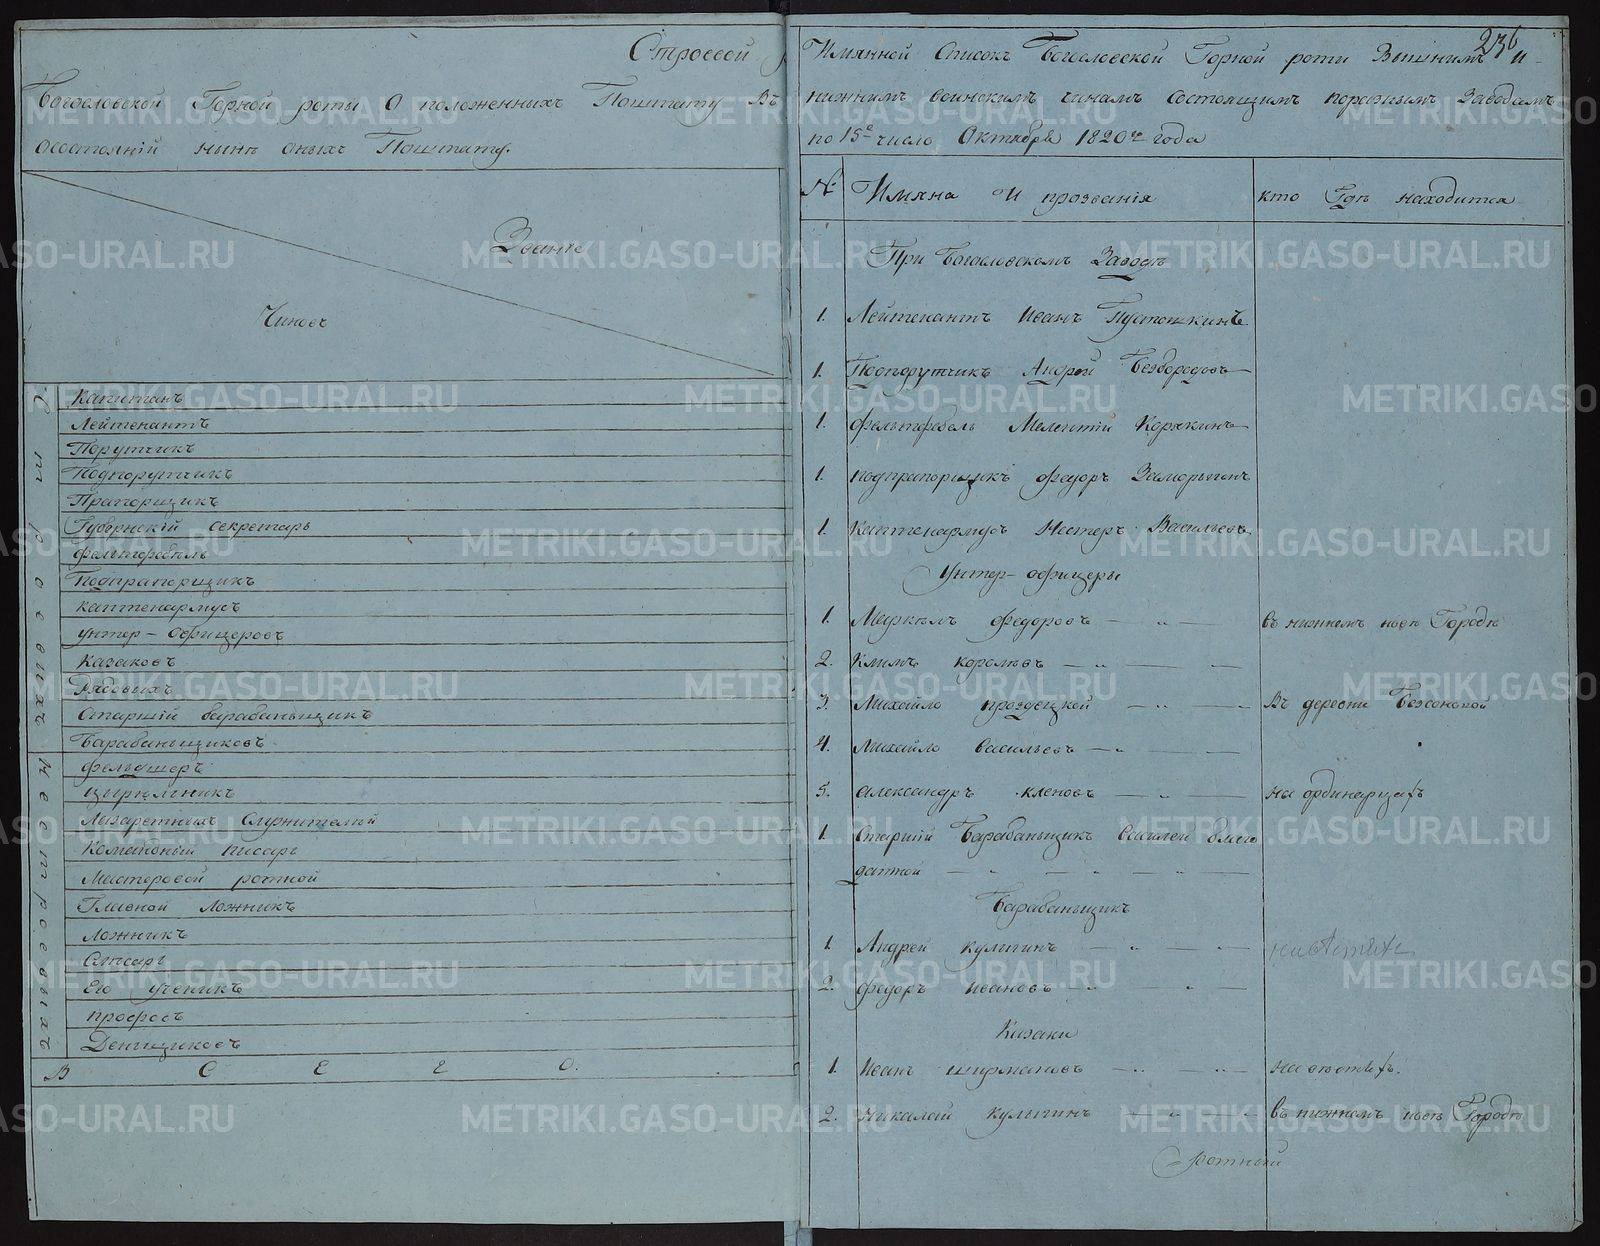 Строевой
Богословской Горной роты О положенныхъ Поштату Въ
осостоянiй нинѣ оныхъ Поштату.
Званiе
Чиновъ
Строевыхъ
Капитанъ
Лейтенантъ
Порутчикъ
Подпорутчикъ
Прапорщикъ
Губернскiй секретарь
фельтфебѣль
Подпрапорщикъ
каптенармусъ
унтер-офицеровъ
Казаковъ
Рядовыхъ
Старшiй барабаньщикъ
Барабаньщиковъ
Нестроевыхъ
фельдшеръ
цырюльникъ
Лазаретныхъ Служителей
Писарь
Мастеровой ротной
Главной Ложникъ
Ложникъ
Слесарь
Его ученикъ
профосъ
Денщиковъ
В С Е Г О.
236
Имянной Списокъ Богословской Горной роты Вышнимъ и
нижнимъ воинскимъ чинамъ Состоящимъ поразнымъ Заводамъ
по 15е число Октября 1820го года
№ Имяна И прозванiя кто Гдѣ находится
При Богословскомъ Заводѣ
1. Лейтенантъ Иванъ Пустошкинъ
1. Подпорутчикъ Андрей Безбородовъ
1. фельтфебель Мелентiй Корякинъ
1. подпрапорщикъ федоръ Заморыгинъ
1. Каптенармусъ Нестеръ Васильевъ
Унтер-офицеры
1. Меркѣлъ федоровъ въ нижнемъ новѣ Городѣ
2. Климъ королѣвъ
3. Михайло проздецкой Въ деревни Безсоновой
4. Михайло Васильевъ
5. александръ кленовъ на ординарцахъ
1. Старшiй Барабаньщикъ Василей благо
датной
Барабаньщикъ
1. Андрей кулыгинъ
2. федоръ ивановъ
Казаки
1. Иванъ ширмановъ
2. николай кулыгинъ въ нижнемъ новѣ Городѣ
ротный